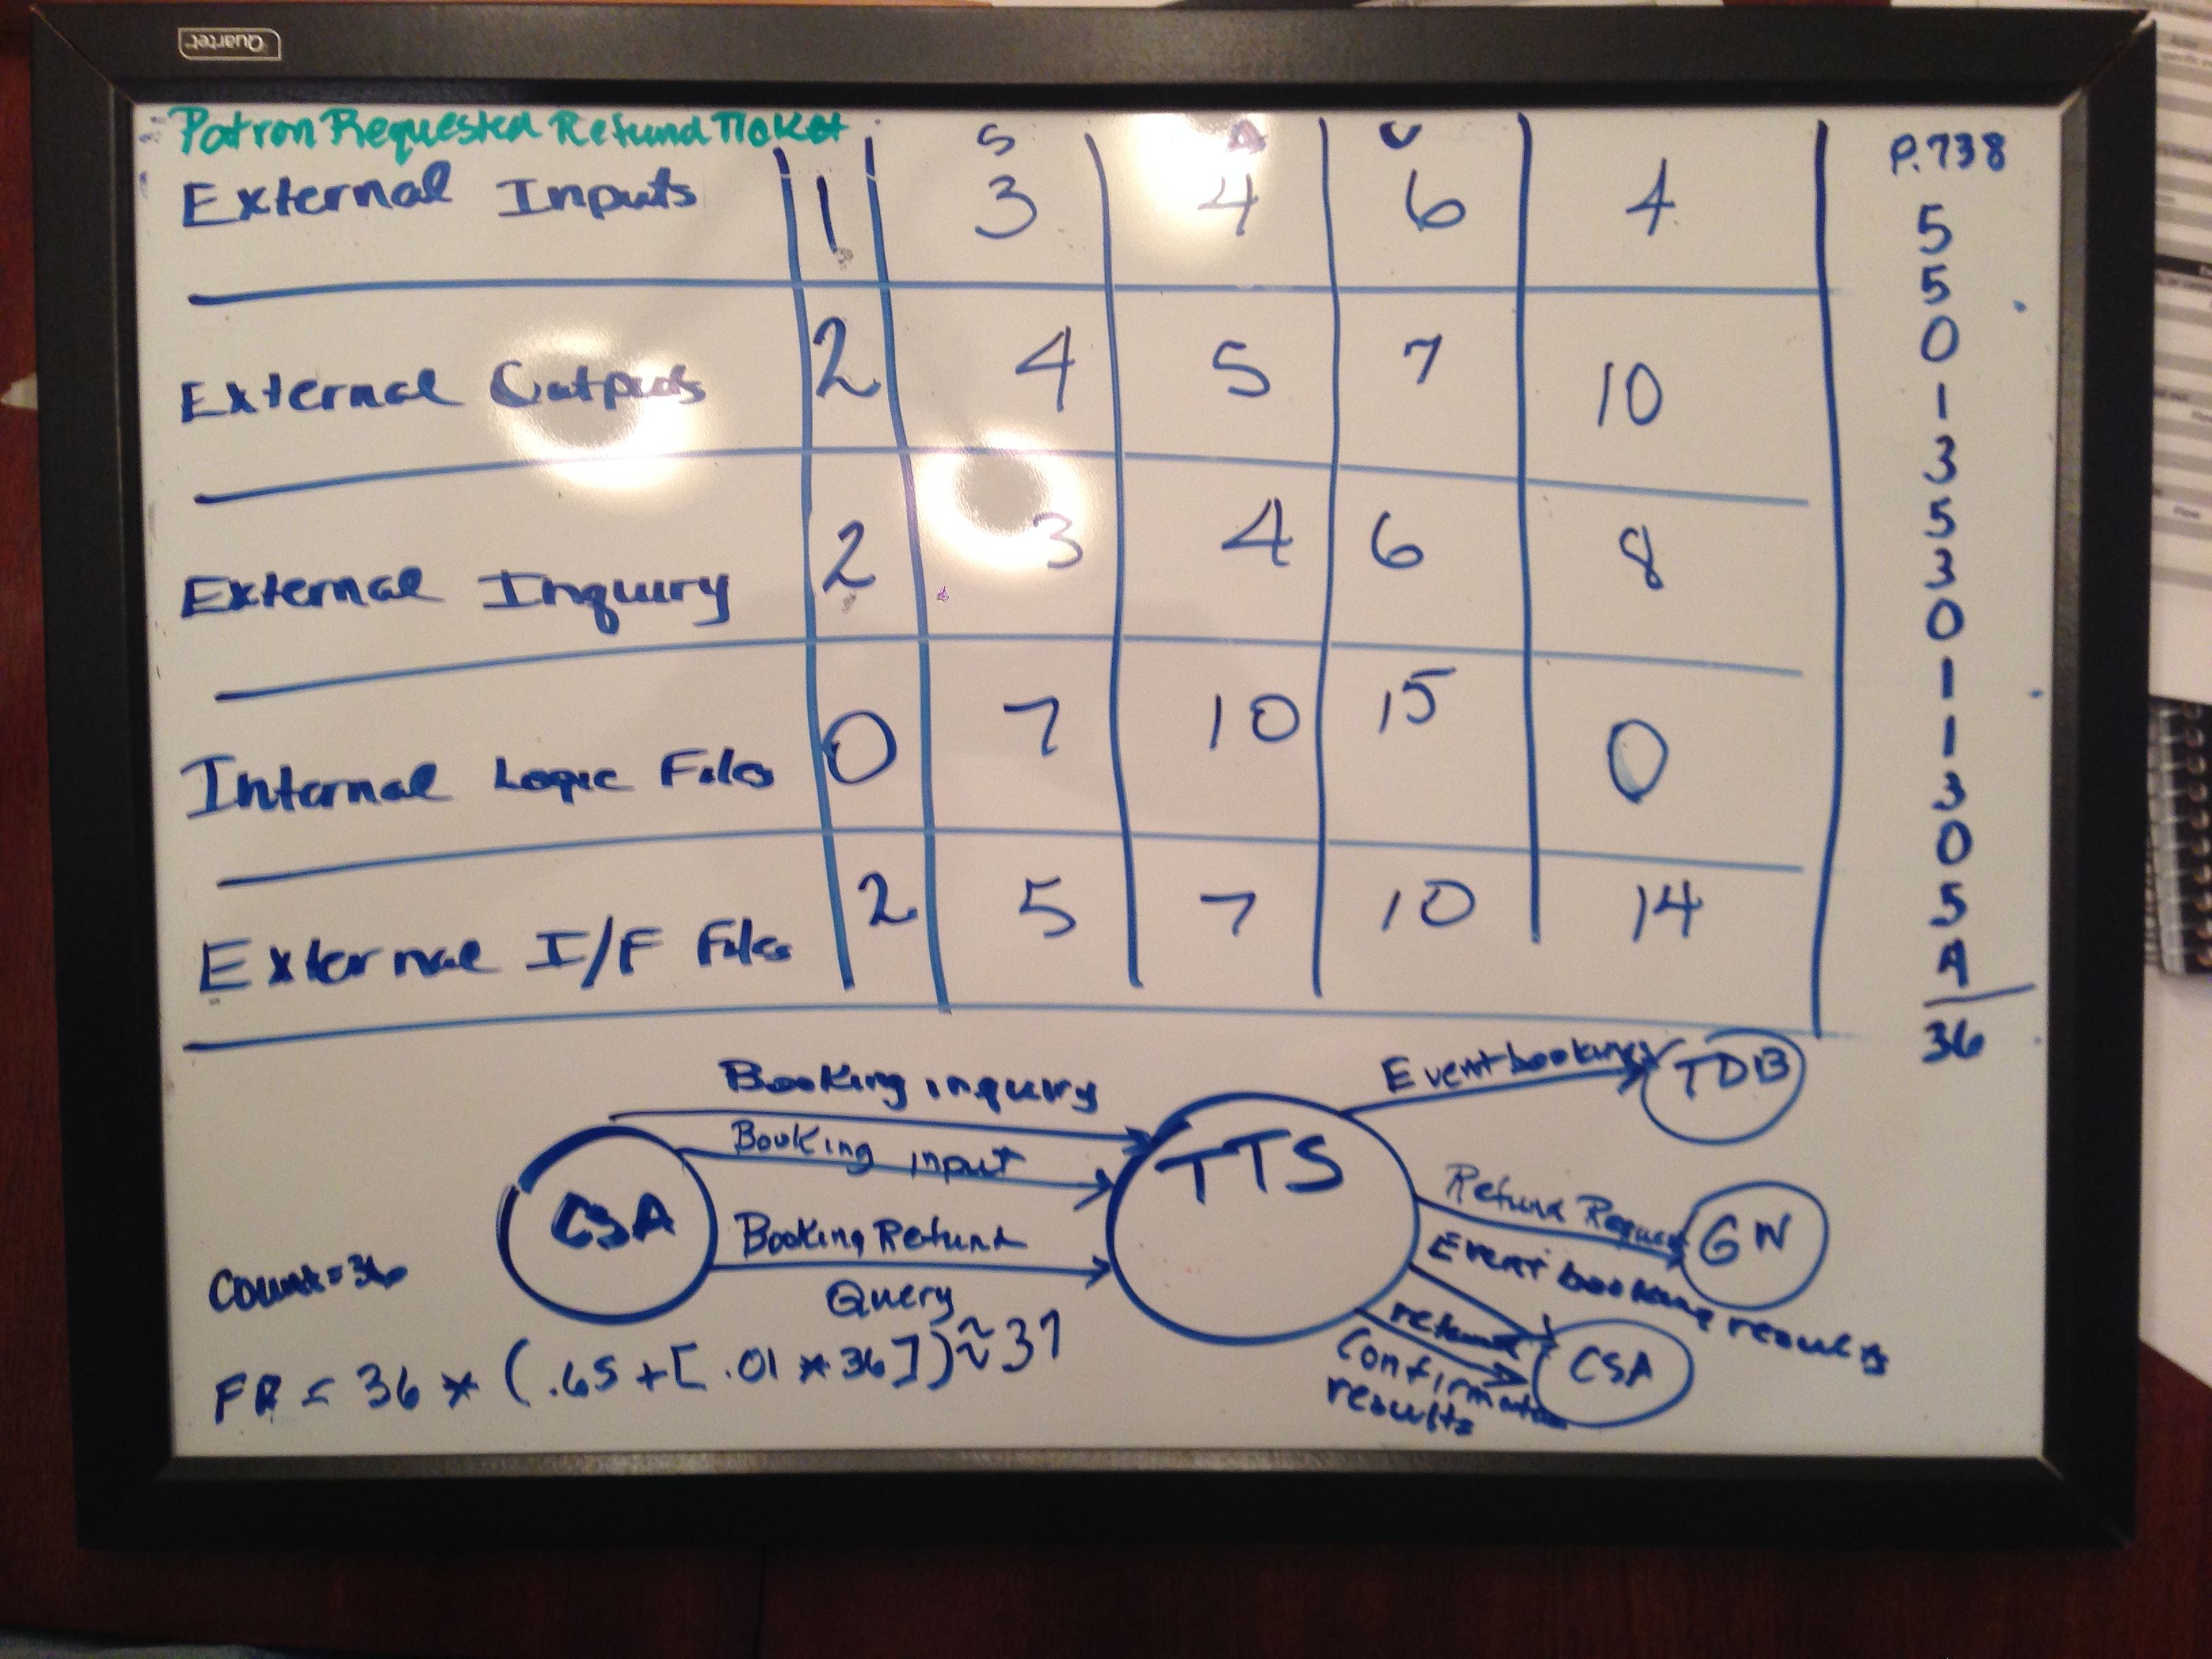 Quartet
Patron Requested Refund Ticket
S A C P.738
External Inputs 1 3 4 6 4
External Outputs 2 4 5 7 10
External Inquiry 2 3 4 6 8
Internal Logic Files 0 7 10 15 0
External I/F Files 2 5 7 10 14
5
5
0
1
3
5
3
0
1
1
3
0
5
4
36
Booking inquiry
Booking input
Booking Refund
Query
CSA
TTS
Event bookings
TDB
Refund Request
GN
Event booking results
refund
Confirmation
results
CSA
Count = 36
FP = 36 * (.65 + [.01 * 36]) ≈ 37